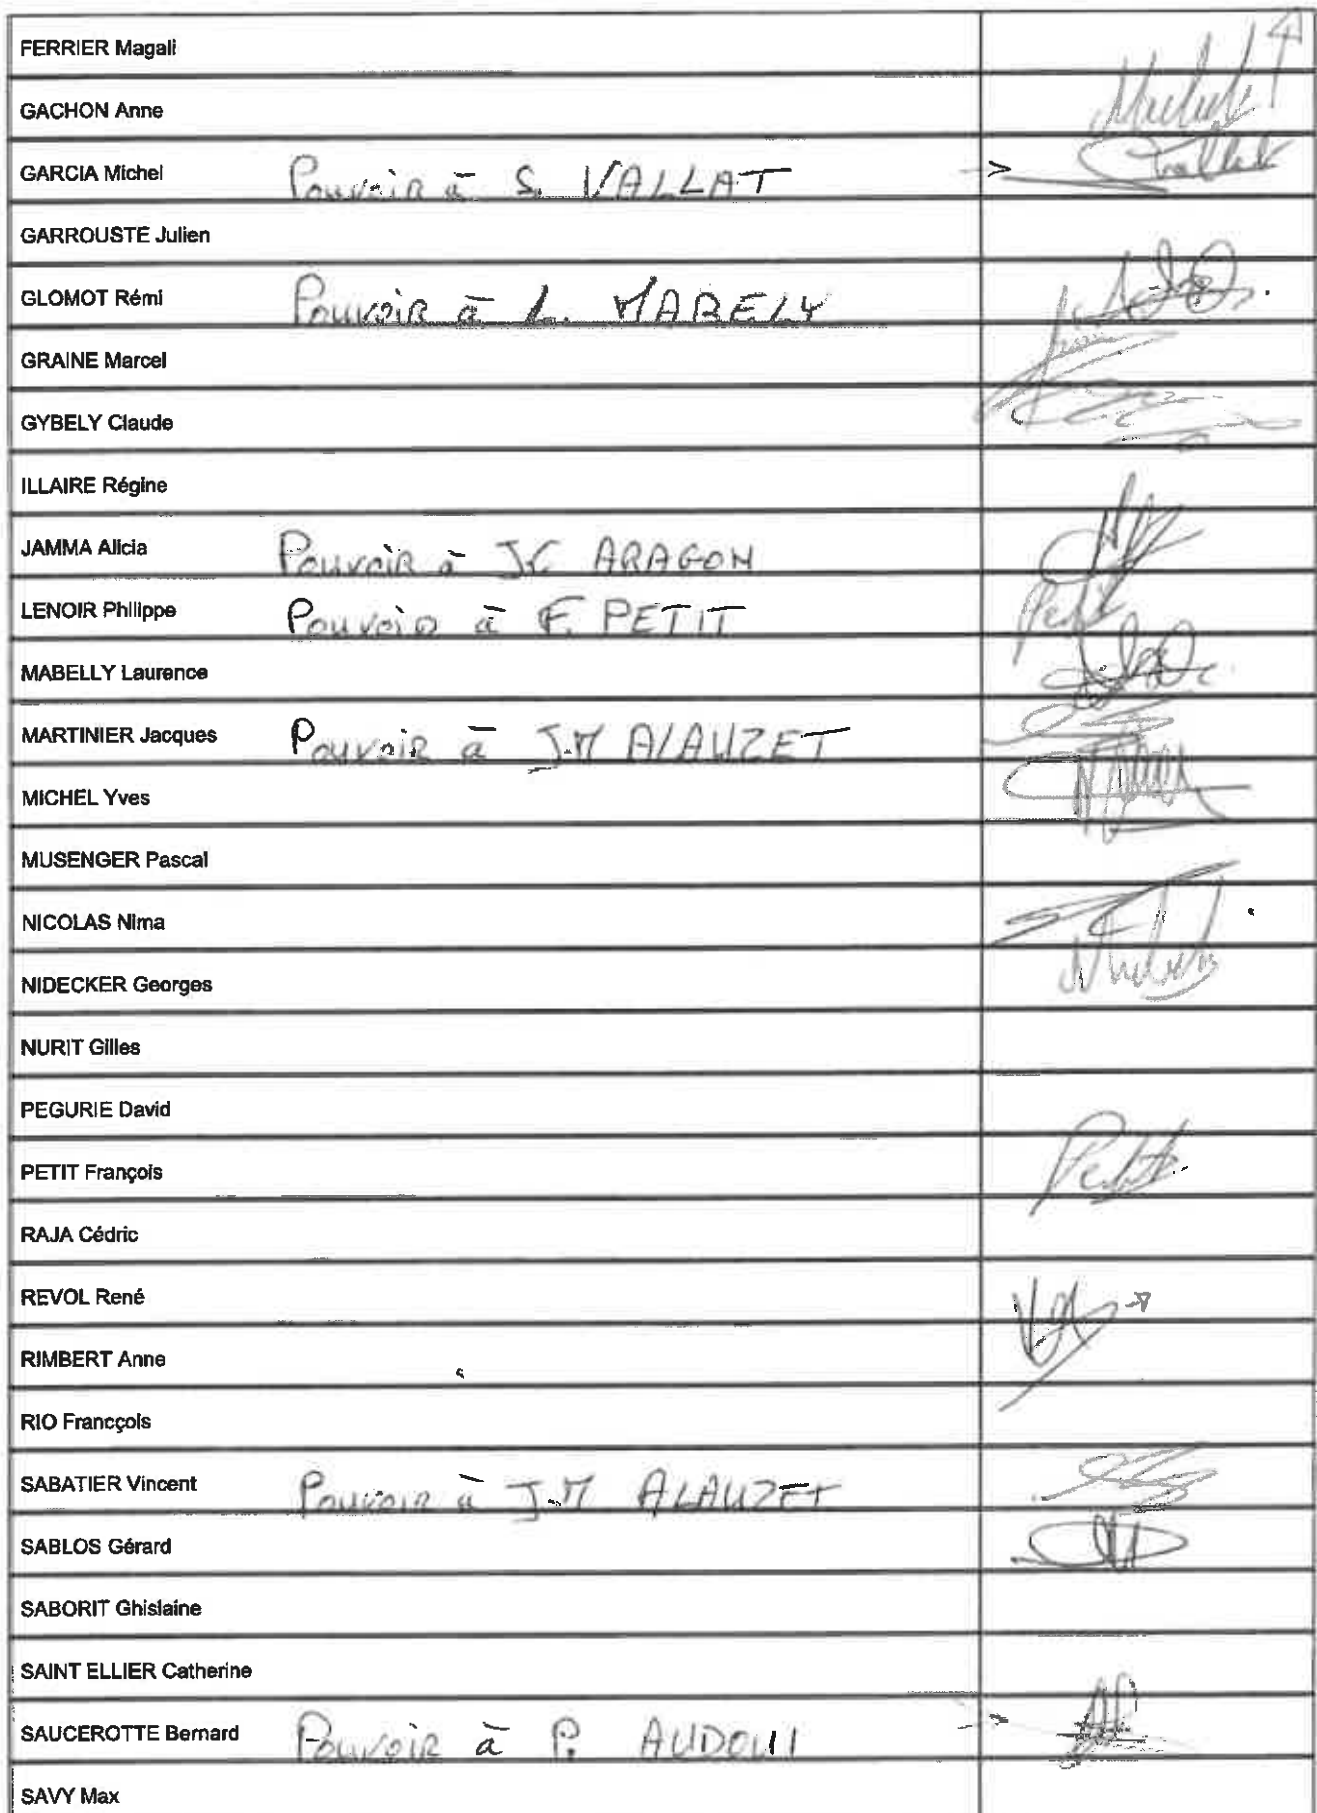 FERRIER Magali
GACHON Anne
GARCIA Michel Pouvoir à S. VALLAT
GARROUSTE Julien
GLOMOT Rémi Pouvoir à L. MABELY
GRAINE Marcel
GYBELY Claude
ILLAIRE Régine
JAMMA Alicia Pouvoir à JC ARAGON
LENOIR Philippe Pouvoir à F. PETIT
MABELLY Laurence
MARTINIER Jacques Pouvoir à J.M ALAUZET
MICHEL Yves
MUSENGER Pascal
NICOLAS Nima
NIDECKER Georges
NURIT Gilles
PEGURIE David
PETIT François Petit
RAJA Cédric
REVOL René
RIMBERT Anne
RIO Francçois
SABATIER Vincent Pouvoir à J.M ALAUZET
SABLOS Gérard
SABORIT Ghislaine
SAINT ELLIER Catherine
SAUCEROTTE Bernard Pouvoir à P. AUDOUI
SAVY Max